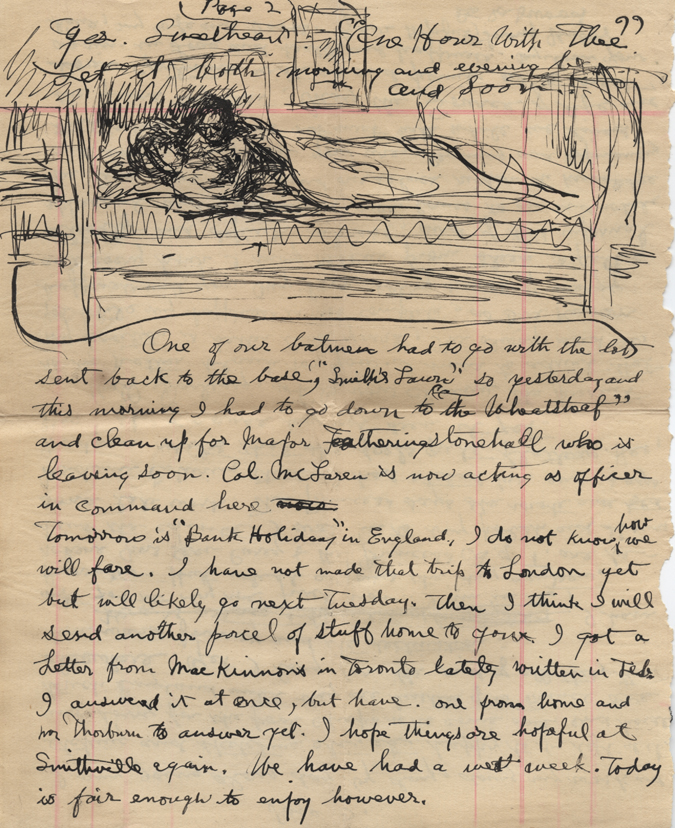 (Page 2)
Yes. Sweetheart "One Hour With Thee."
Let it both morning and evening be
and soon!
One of our batmen had to go with the lot
sent back to the base, "Smith's Lawn" so yesterday and
this morning I had to go down to "the Wheatsheaf"
and clean up for Major Featheringstonehall who is
leaving soon. Col. McLaren is now acting as officer
in command here now
Tomorrow is "Bank Holiday" in England, I do not know how we
will fare. I have not made that trip to London yet
but will likely go next Tuesday. Then I think I will
send another parcel of stuff home to you. I got a
Letter from MacKinnons in Toronto lately written in Feb.
I answered it at once, but have. one from home and
Thorburn to answer yet. I hope things are hopeful at
Smithville again. We have had a wet week. Today
is fair enough to enjoy however.